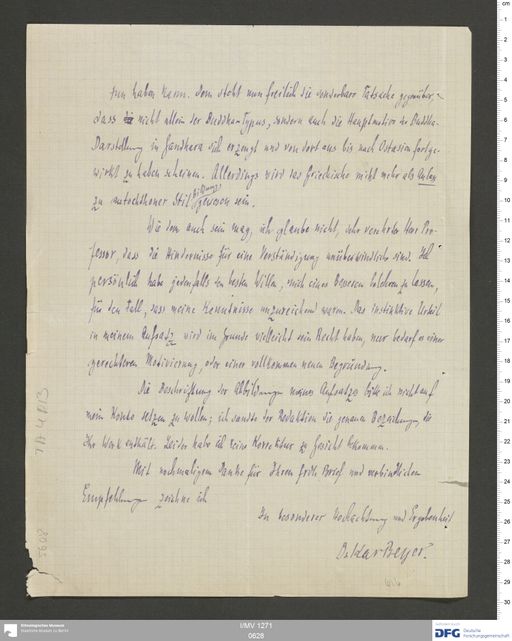 tun haben kann. Dem steht nun freilich die sonderbare Tatsache gegenüber,
dass nicht allein der Buddha-Typus, sondern auch die Hauptmotive der Buddha-
Darstellung in Gandhara sich erzeugt und von dort aus bis nach Ostasien fortge-
wirkt zu haben scheinen. Allerdings wird das Griechische nicht mehr als Anlass
zu autochthoner Stilbildung gewesen sein.
Wie dem auch sein mag, ich glaube nicht, sehr verehrter Herr Pro-
fessor, dass die Hindernisse für eine Verständigung unüberwindlich sind. Ich
persönlich habe jedenfalls den besten Willen, mich eines Besseren belehren zu lassen,
für den Fall, dass meine Kenntnisse unzureichend waren. Das instinktive Urteil
in meinem Aufsatz wird im Grunde vielleicht sein Recht haben, nur bedarf es einer
gerechteren Motivierung, oder einer vollkommen neuen Begründung.
Die Beschriftung der Abbildungen meines Aufsatzes bitte ich nicht auf
mein Konto setzen zu wollen; ich sandte der Redaktion die genauen Bezeichnungen, die
Ihr Werk enthält. Leider habe ich keine Korrektur zu Gesicht bekommen.
Mit nochmaligem Danke für Ihren Brief und verbindlichen
Empfehlungen zeichne ich
In besonderer Hochachtung und Ergebenheit
Oskar Beyer.
IA 4 AB
5608
Ethnologisches Museum
Staatliche Museen zu Berlin
I/MV 1271
0628
DFG Deutsche
Forschungsgemeinschaft